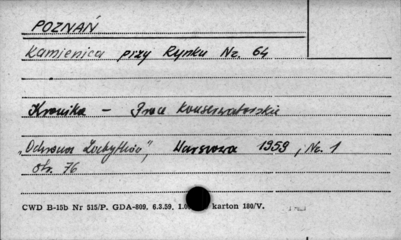 POZNAŃ
Kamienica przy Rynku Nr. 64
Kronika — Prace konserwatorskie
„Ochrona Zabytków”, Warszawa 1959, No. 1
str. 76
CWD B-15b Nr 515/P. GDA-809. 6.3.59. karton 180/V.